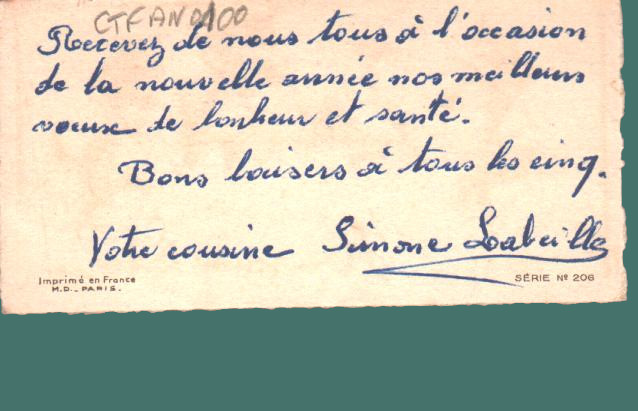 CTFAN0100
Recevez de nous tous à l'occasion
de la nouvelle année nos meilleurs
voeux de bonheur et santé.
Bons baisers à tous les cinq.
Votre cousine Simone Labeille
Imprimé en France
M.D. - PARIS.
SÉRIE Nº 206